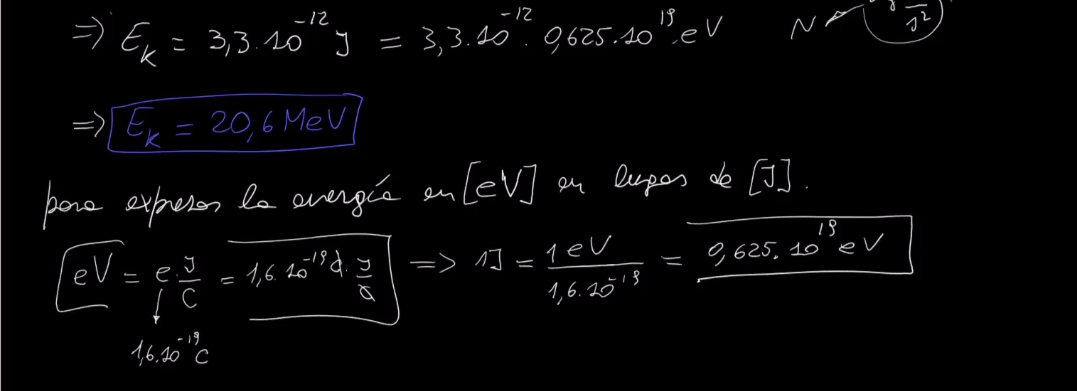 => E_K = 3,3.10^-12 J = 3,3.10^-12 . 0,625.10^19 eV N s^2
=> E_K = 20,6 MeV
para expresar la energía en [eV] en lugar de [J].
eV = e. J/C = 1,6.10^-19 C. J/C => 1J = 1 eV/1,6.10^-19 = 0,625.10^19 eV
1,6.10^-19 C